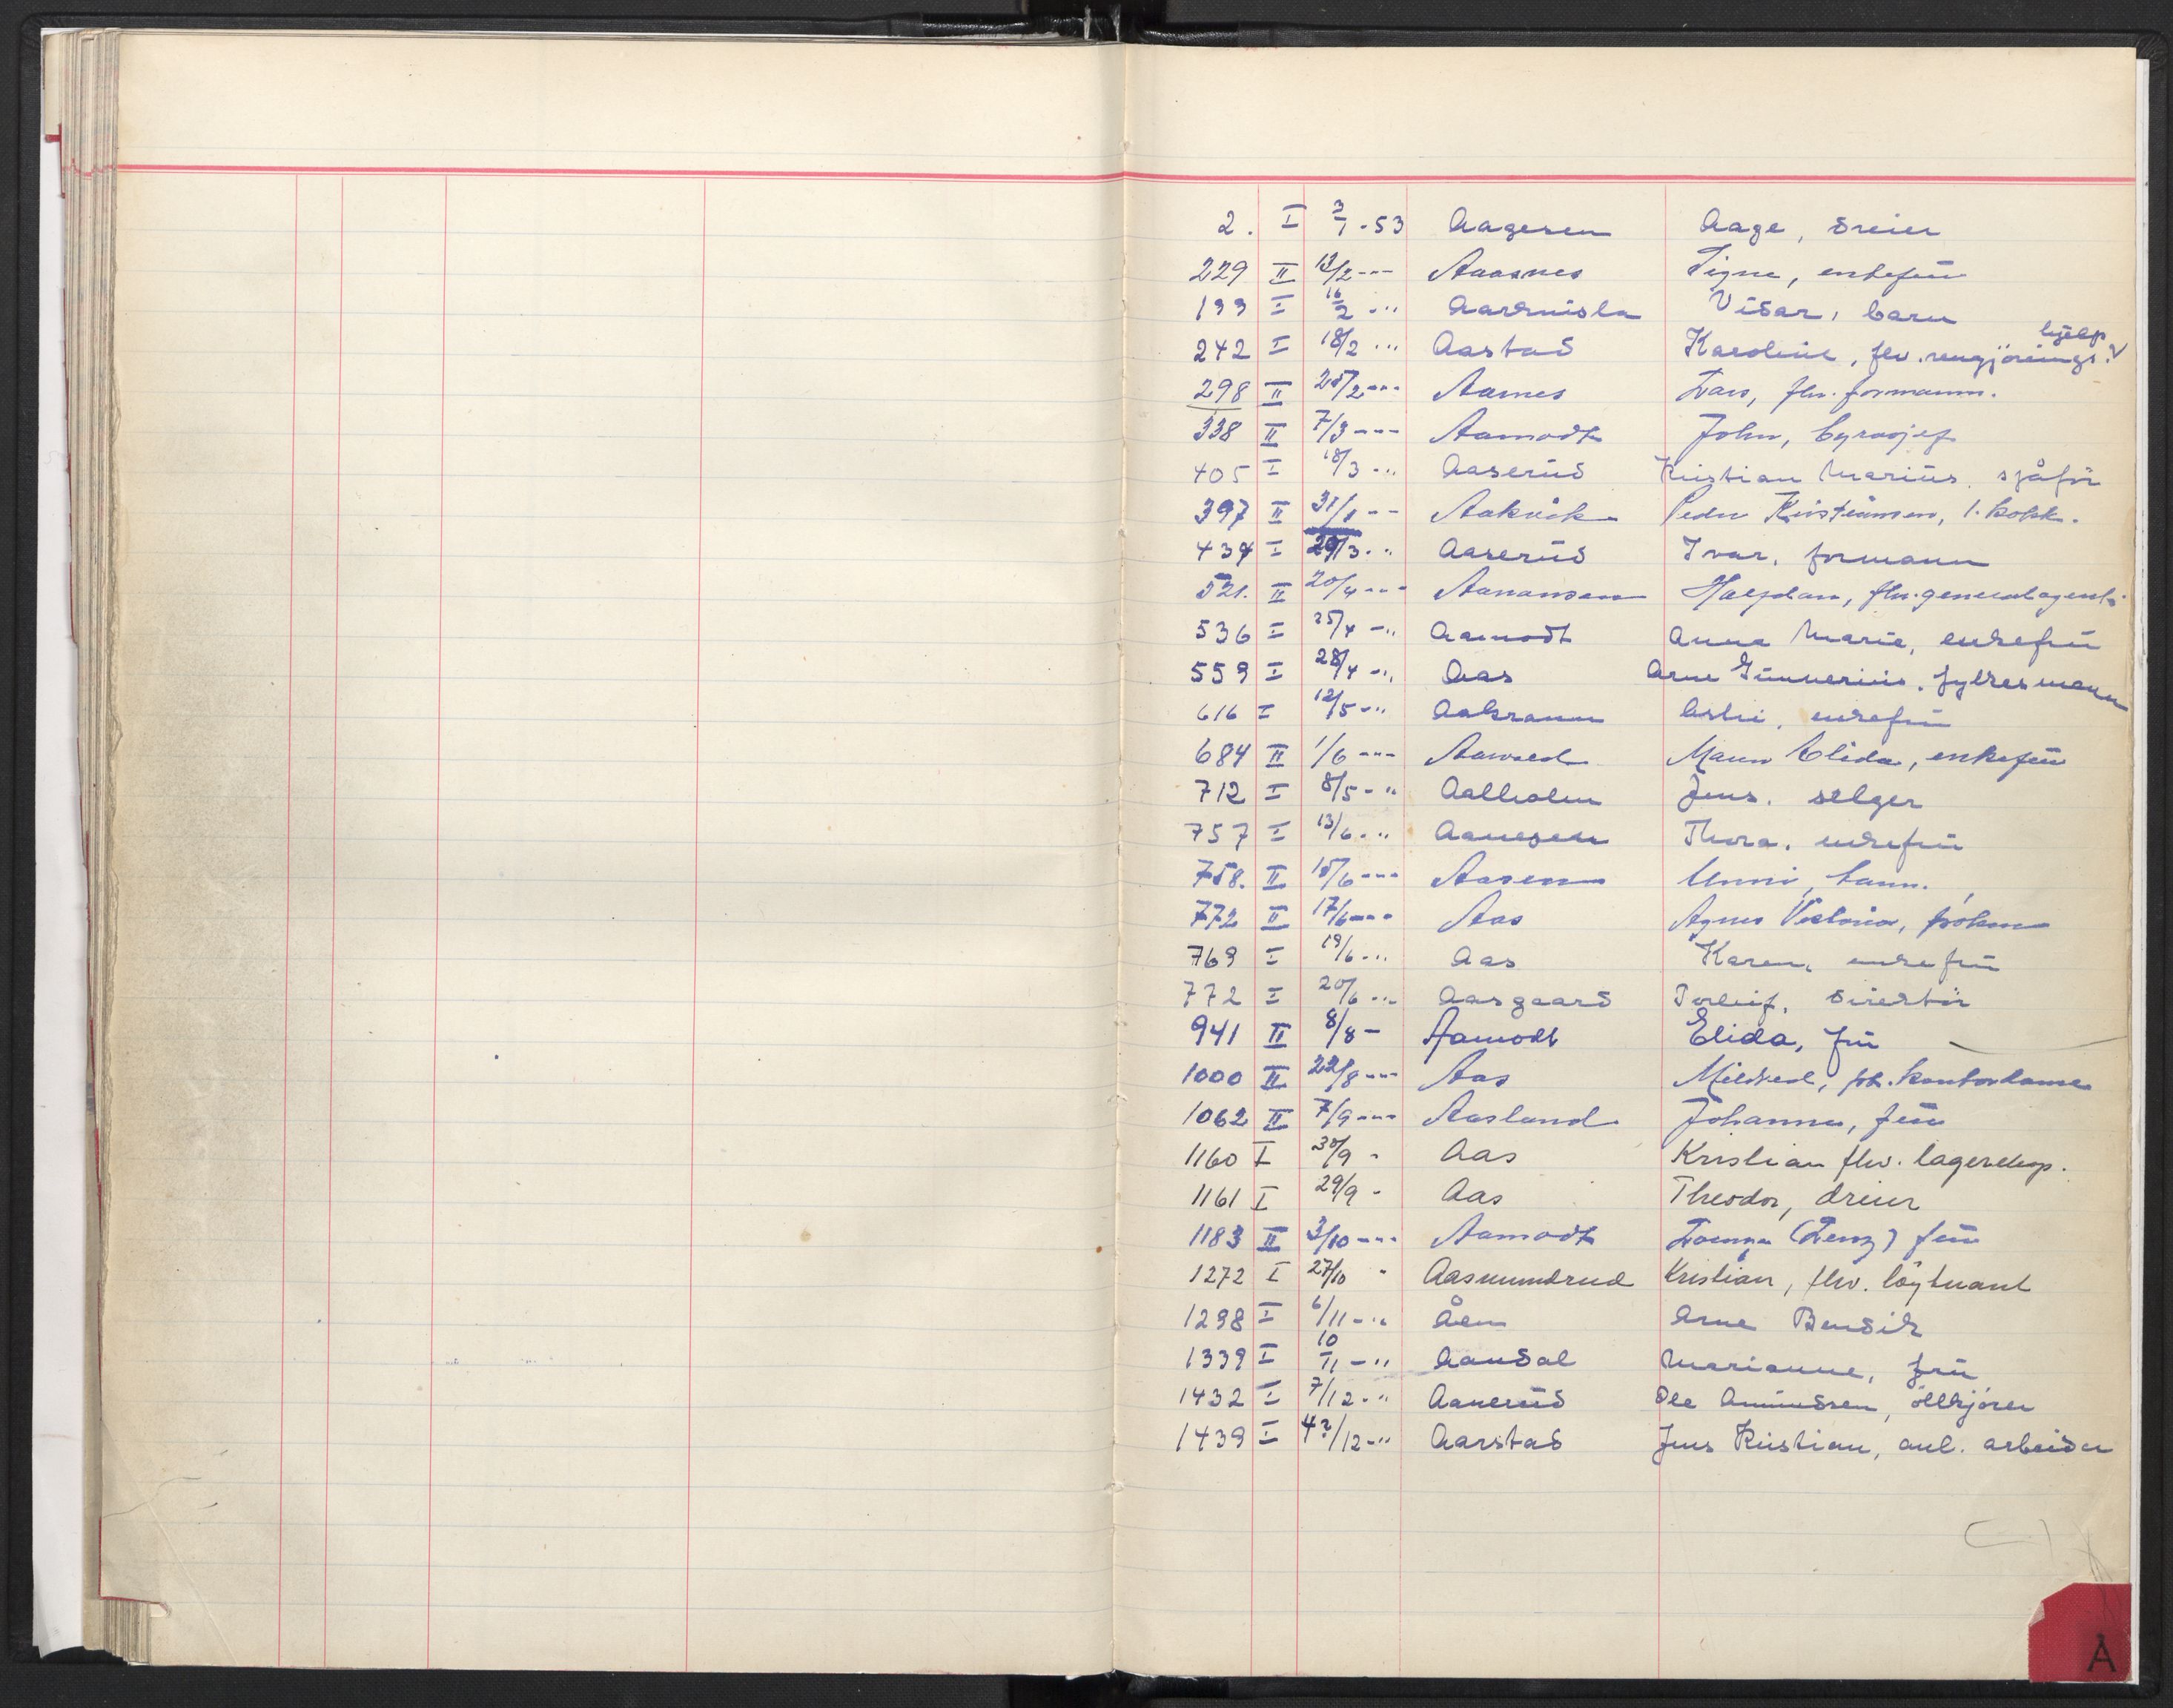 2. I 3/1 - 53 Aagesen Aage, dreier
229 II 13/2 --- Aaasnes Signe, enkefrü
199 I 16/2 -" Vidar, barn
242 I 18/2 -" Aastad Karoline, flv. rengjörings hjelp
298 II 25/2 --- Aarnes Lars, flv. formann.
338 II 7/3 --- Aamodt John, byråsjef
405 I 18/3 -" Aaserüd Kristian Marius, sjåför
397 II 31/1 -- Aakvik Peder Kristiansen, 1. kokk.
434 I 29/3 -" Aaserüd Ivar, formann
521. II 20/4 --- Aanansen Halfdan, flv. generalagent
536 I 25/4 -" Aamodt Anna Marie, enkefrü
559 I 28/4 -" Aas Arne Günnerius, fylkesmann
616 I 12/5 -" Aakrann enkefrü
684 II 1/6 --- Maren Elida, enkefrü
712 I 8/5 -" Aalholm Jens, selger
757 I 13/6 -" Aanesen Thora, enkefrü
758. II 15/6 --- Aasen Unni, barn.
772 II 17/6 --- Aas Agnes Victoria, frøken
769 I 19/6 -" Aas Karen, enkefrü
772 I 20/6 -" Aasgaard Torleif, direktör
941 II 8/8 - Aamodt Elida, frü
1000 II 22/8 --- Aas Mildred, frk. kontordame
1062 II 7/9 --- Aasland Johanna, frü
1160 I 30/9 - Aas Kristian flv. lagereksp.
1161 I 29/9 - Aas Theodor, dreier
1183 II 3/10 --- Aamodt (Lenz) frü
1272 I 27/10 " Aasmundrud Kristian, flv. löytnant
1298 I 6/11 -" Åen Arne Bendik
1339 I 10/11 -" Aandal Marianne, frü
1432 I 7/12 -" Aanerüd Ole Amündsen, ölkjörer
1439 I 4?/12 -" Aarstad Jens Kristian, anl. arbeider
A